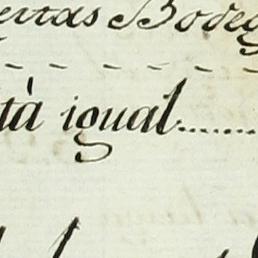 ertas Bodeg
tà igual........